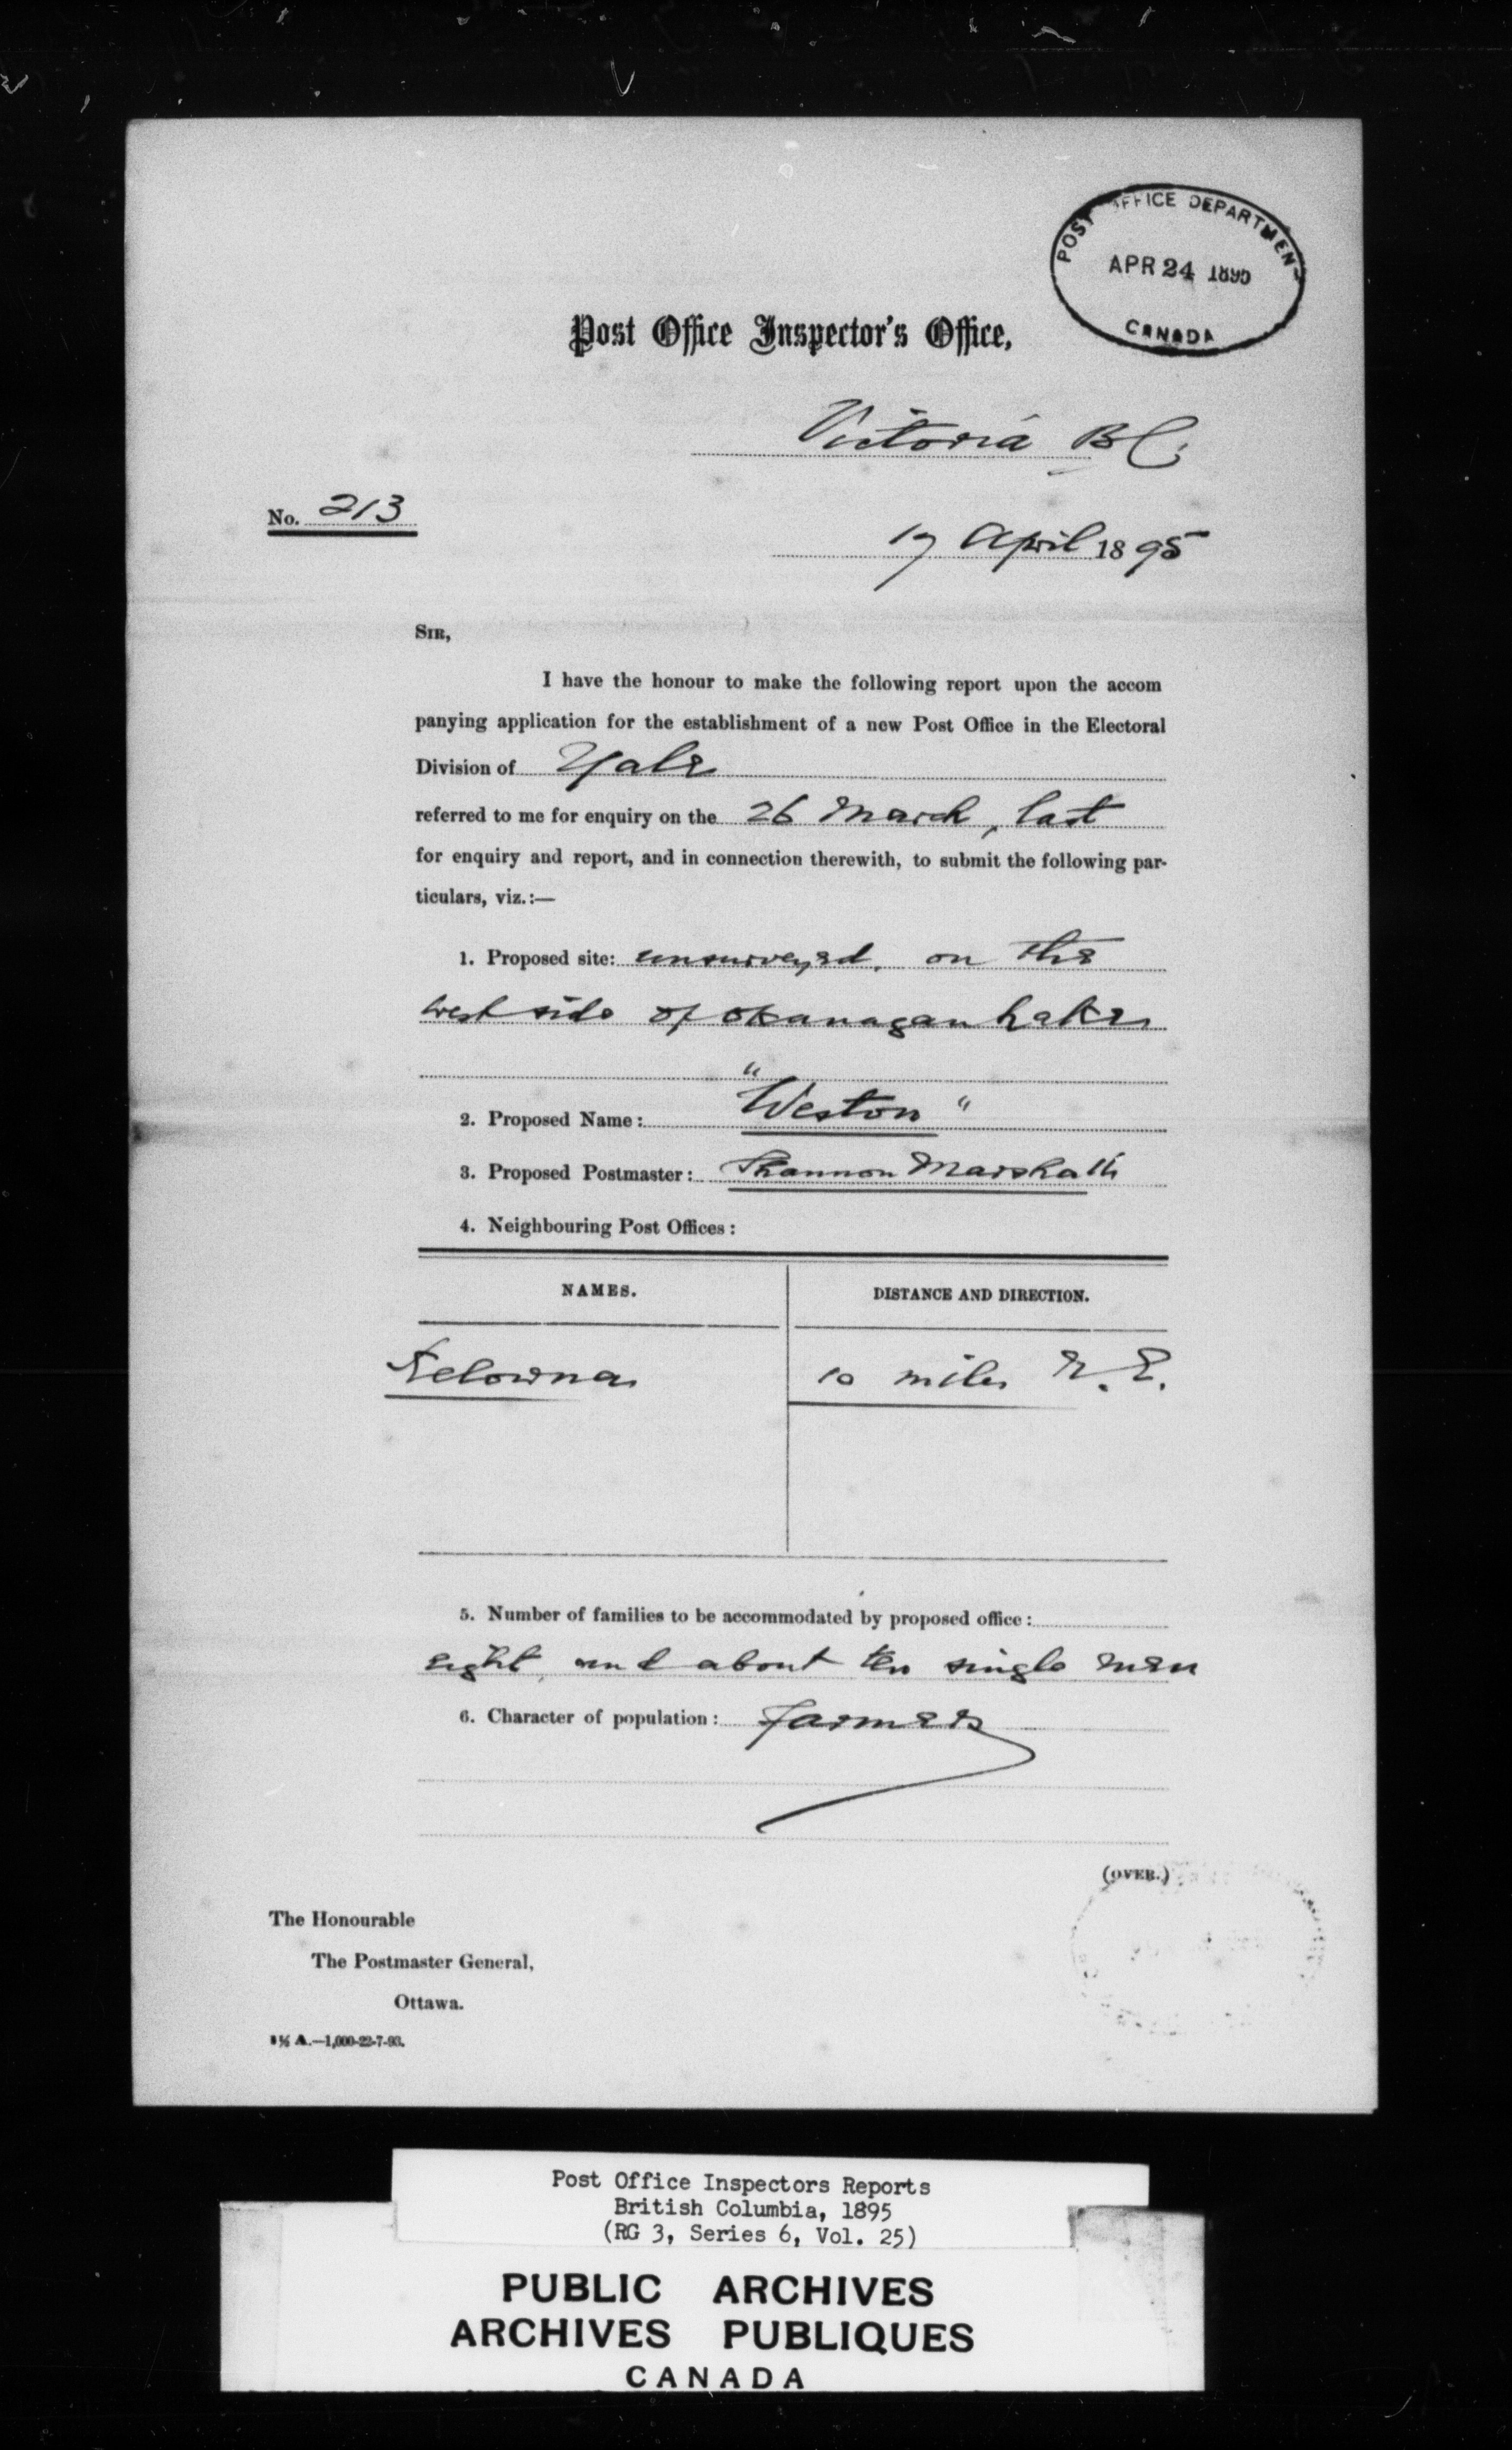 POST OFFICE DEPARTMENT
APR 24 1895
CANADA
Post Office Inspector's Office,
Victoria BC.
No. 213
17 April 1895
SIR,
I have the honour to make the following report upon the accom
panying application for the establishment of a new Post Office in the Electoral
Division of Yale
referred to me for enquiry on the 26 March, last
for enquiry and report, and in connection therewith, to submit the following par-
ticulars, viz.:—
1. Proposed site: unsurveyed, on the
west side of Okanagan Lake
2. Proposed Name: "Weston"
3. Proposed Postmaster: Shannon Marshall
4. Neighbouring Post Offices:
NAMES. DISTANCE AND DIRECTION.
Kelowna 10 miles N.E.
5. Number of families to be accommodated by proposed office:
eight, and about ten single men
6. Character of population: farmers
(OVER.)
The Honourable
The Postmaster General,
Ottawa.
A.—1,000-22-7-93.
Post Office Inspectors Reports
British Columbia, 1895
(RG 3, Series 6, Vol. 25)
PUBLIC ARCHIVES
ARCHIVES PUBLIQUES
CANADA